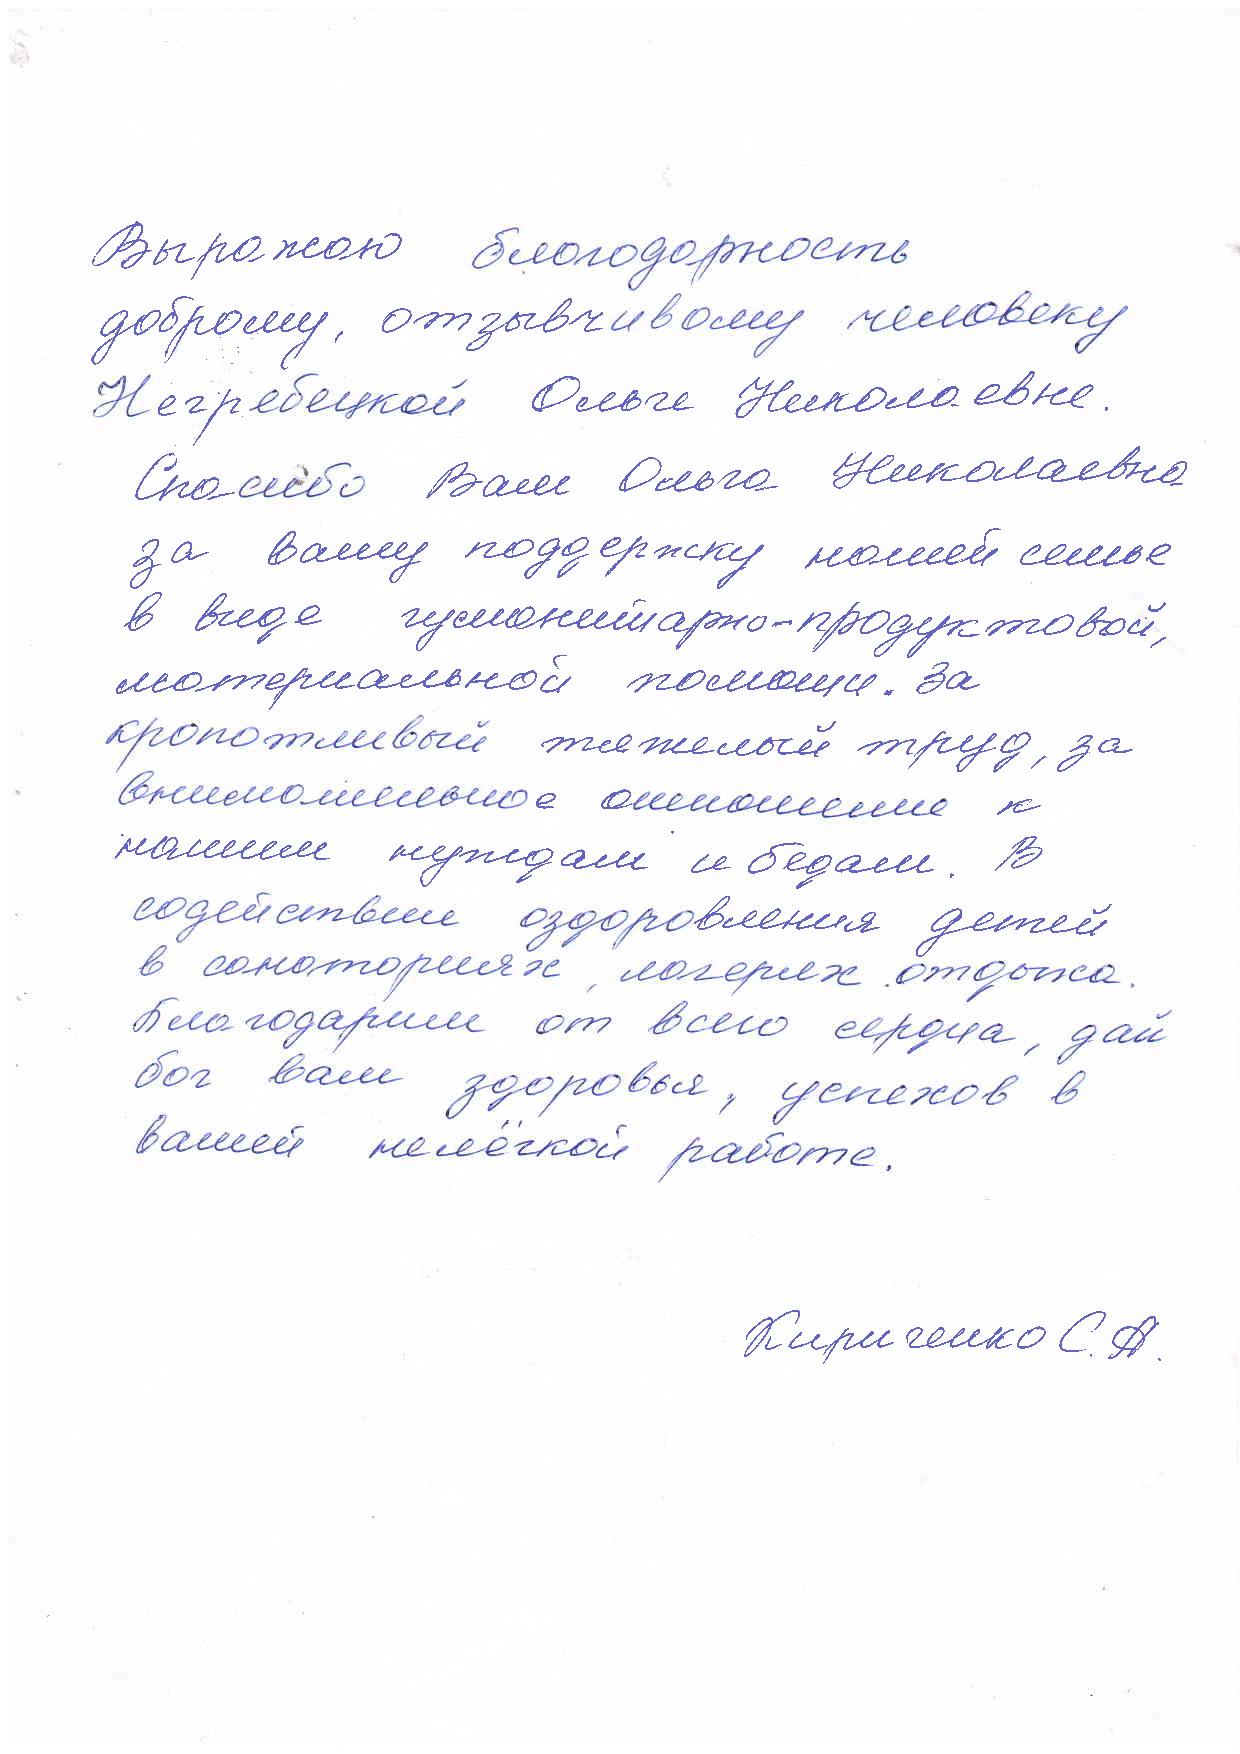 Выражаю благодарность
доброму, отзывчивому человеку
Негребецкой Ольге Николаевне.
Спасибо Вам Ольга Николаевна
за вашу поддержку нашей семье
в виде гуманитарно-продуктовой,
материальной помощи. За
кропотливый тяжелый труд, за
внимательное отношение к
нашим нуждам и бедам. В
содействии оздоровления детей
в санаториях, лагерях отдыха.
Благодарим от всего сердца, дай
бог вам здоровья, успехов в
вашей нелёгкой работе.
Кириченко С.А.